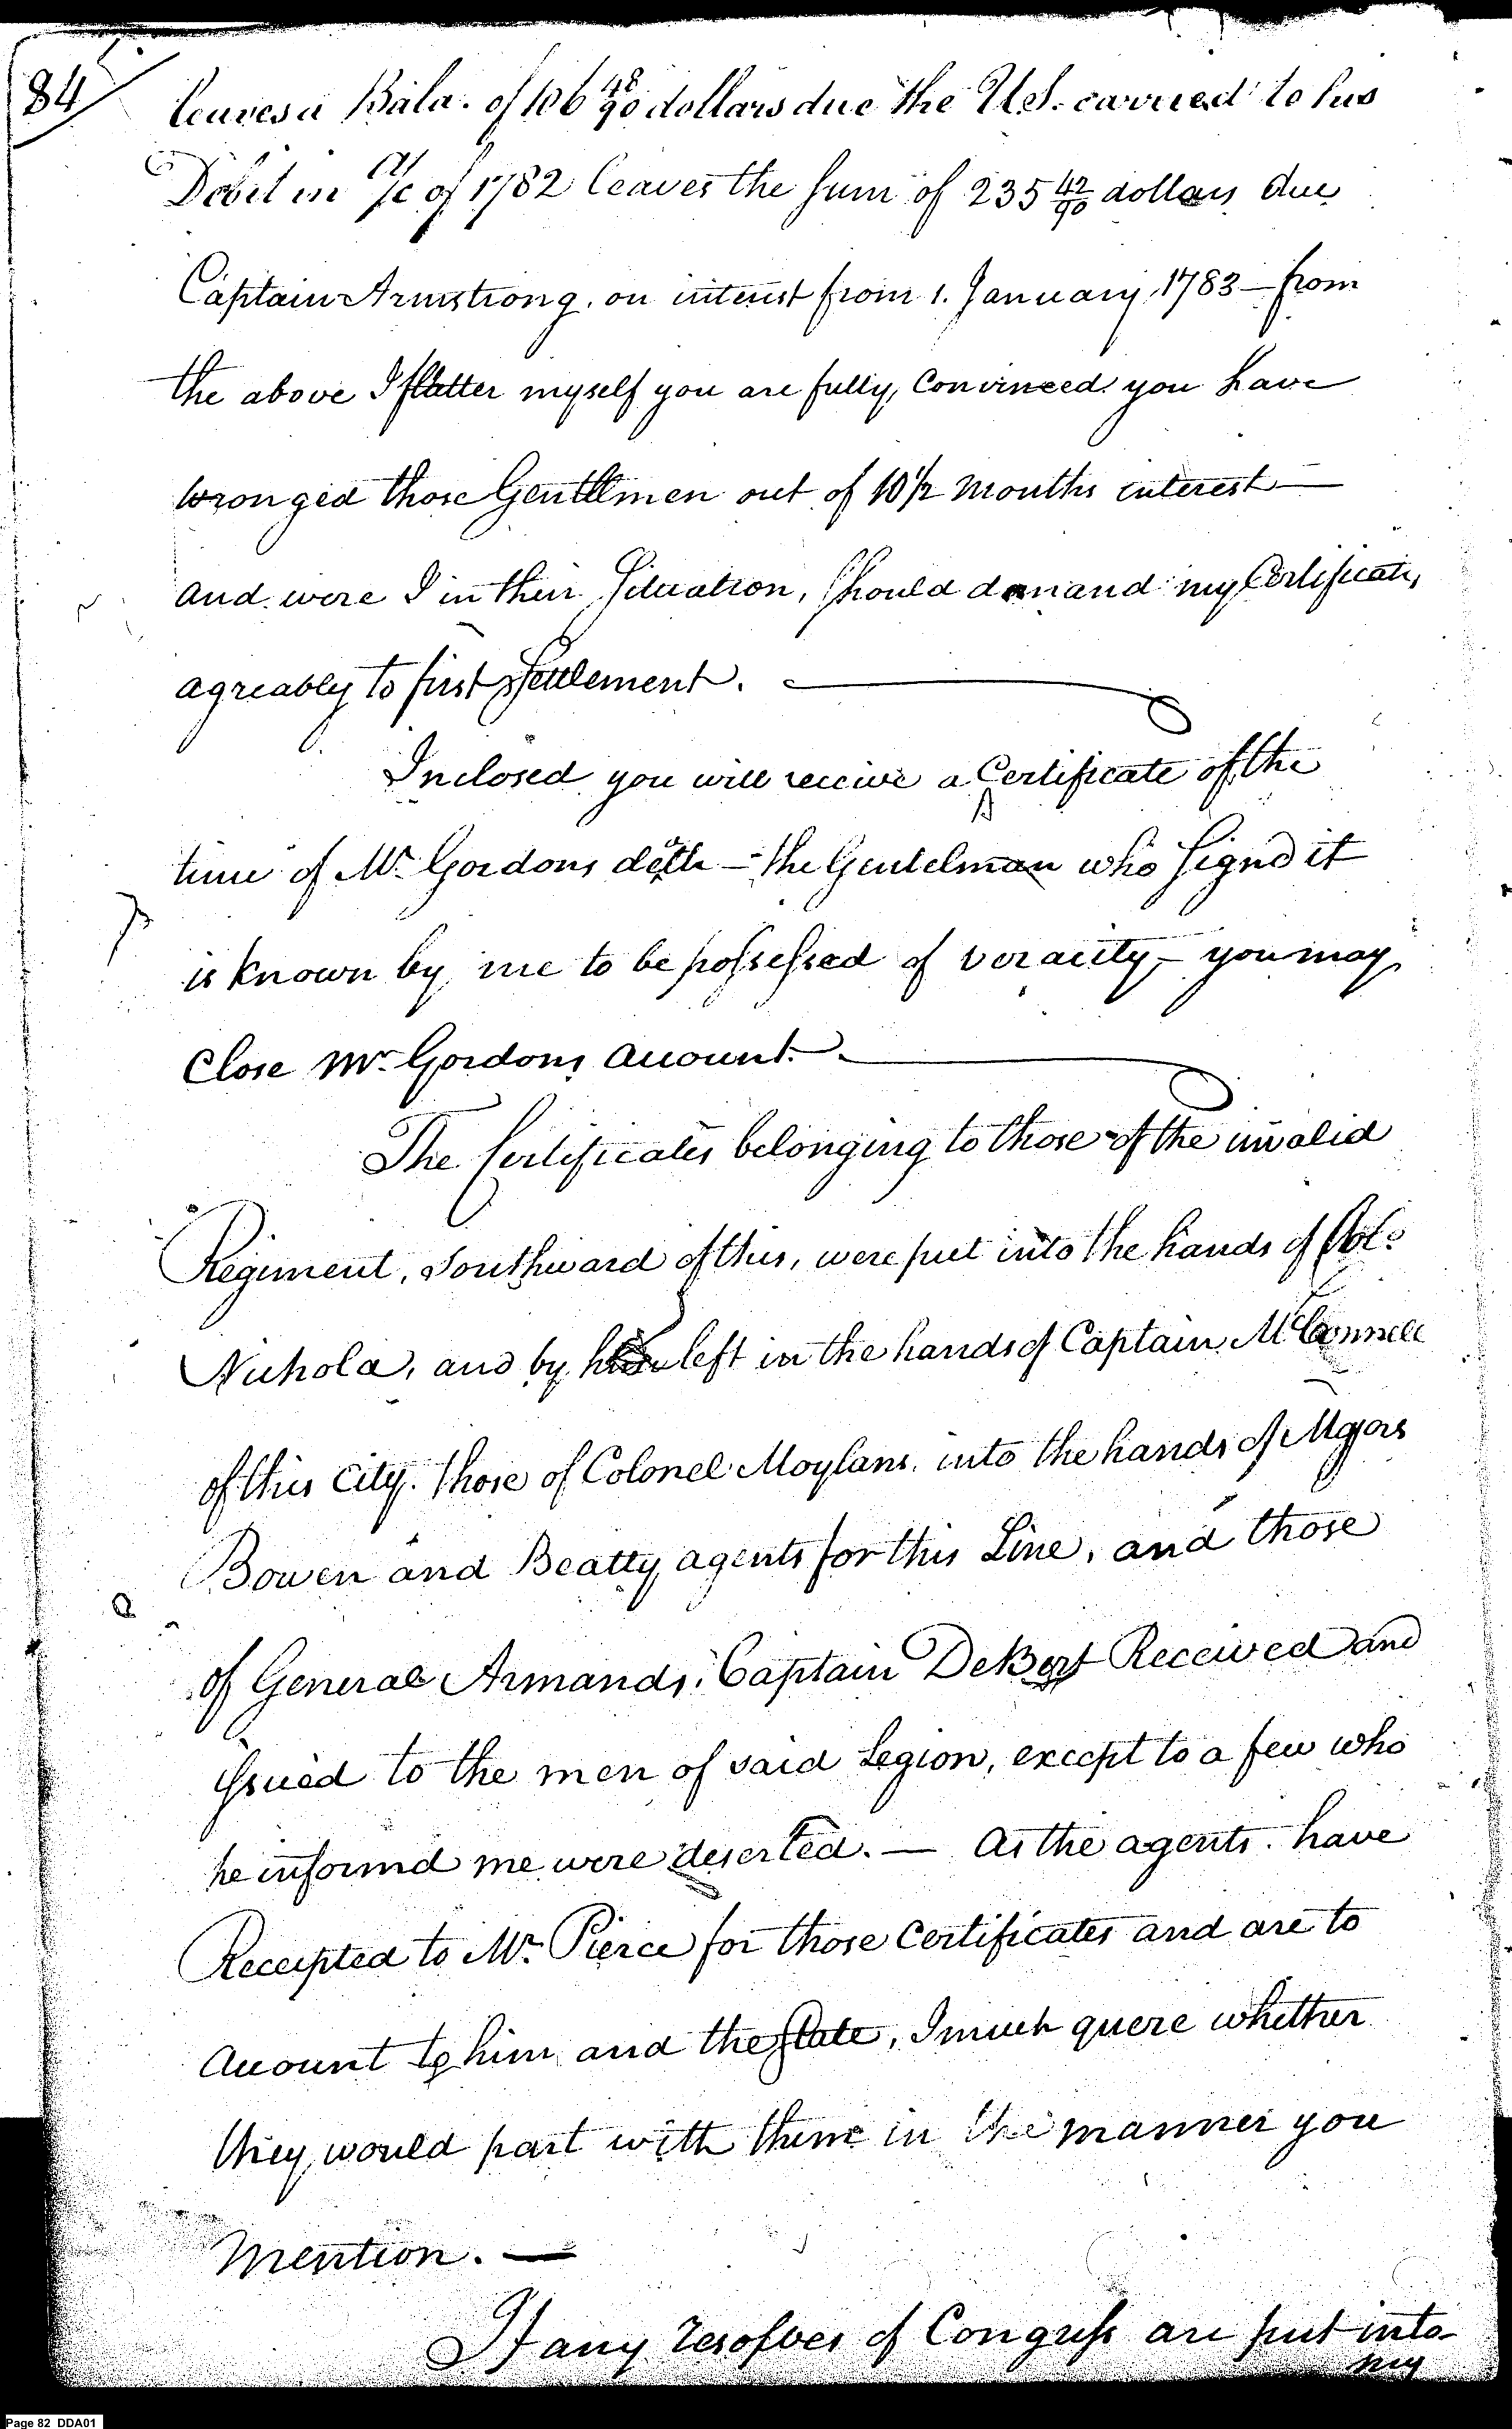 84
leaves a Bala. of 106 48/90 dollars due the U.S. carried to his
Debit in a/c of 1782 leaves the Sum of 235 42/90 dollars due
Captain Armstrong, on interest from 1. January, 1783 — from
the above I flatter myself you are fully, Convinced you have
wronged those Gentlemen out of 10 1/2 Months interest —
and were I in their Situation, Should demand my Certificate,
agreably to first Settlement. —
Inclosed you will receive a Certificate of the
time of Mr. Gordons deth — the Gentelman who Signd it
is known by me to be possessed of veracity, — you may
Close Mr. Gordons Account. —
The Certificates belonging to those of the invalid
Regiment, Southward of this, were put into the hands of Colo.
Nichola, and by him left in the hands of Captain McConnell
of this City. those of Colonel Moylans, into the hands of Majors
Bowen and Beatty agents for this Line, and those
of General Armands, Captain DeBert Received and
issued to the men of said Legion, except to a few who
he informd me were deserted. — As the agents have
Receipted to Mr. Pierce for those Certificates and are to
Account to him and the State, I much quere whether
they would part with them in the manner you
Mention. —
If any resolves of Congress are put into
my
Page 82 DDA01